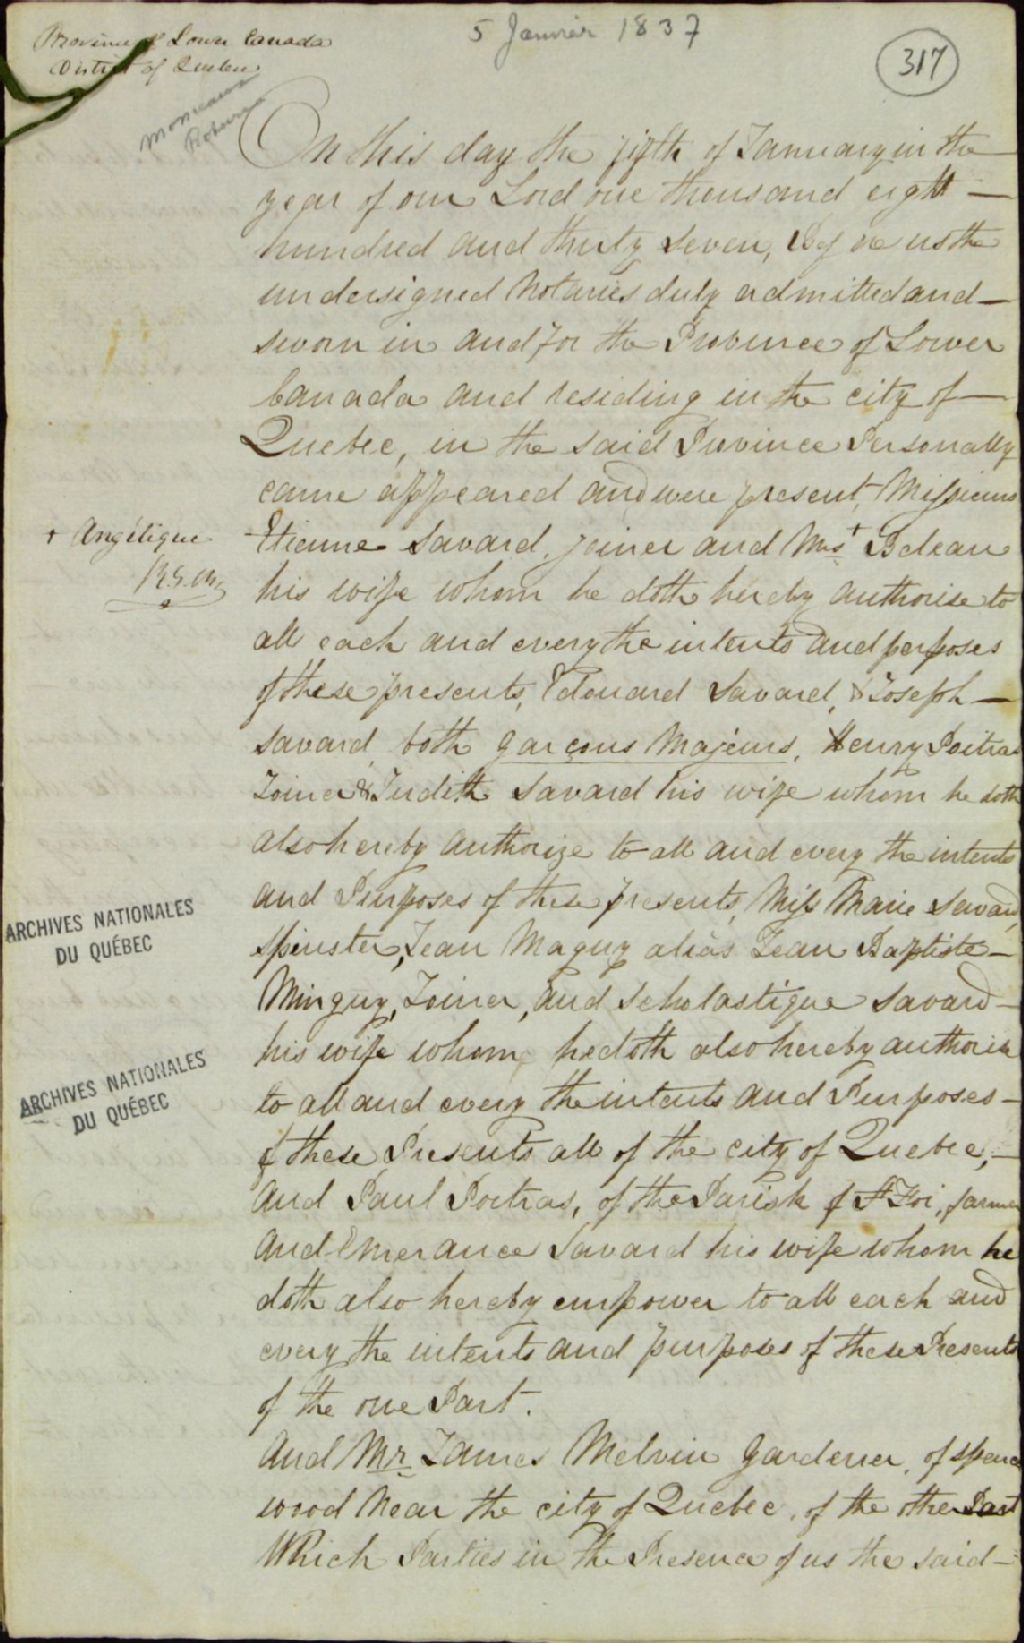 Province of Lower Canada
District of Quebec
5 Janvier 1837
317
On this day the fifth of January in the
year of our Lord one thousand eight
hundred and thirty seven, Before us the
undersigned Notaries duly admitted and
sworn in and for the Province of Lower
Canada and residing in the city of
Quebec, in the said Province Personally
came appeared and were present, Messieurs
Etienne Savard, joiner and Mrs + Beleau
+ Angélique
his wife whom he doth hereby authorise to
all each and every the intents and perposes
of these presents, Edouard Savard, & Joseph
Savard both garçons Majeurs, Henry Poitras
Joiner & Judith Savard his wife whom he doth
also hereby authorize to all and every the intents
and Purposes of these presents, Miss Marie Savard,
spinster, Jean Maguy alias Jean Baptiste
Minguy, Joiner, and Scholastique Savard
his wife whom he doth also hereby authorise
to all and every the intents and Purposes
of these Presents all of the city of Quebec,
and Paul Poitras, of the Parish of St Foi, farmer
and Emerance Savard his wife whom he
doth also hereby empower to all each and
every the intents and purposes of these Presents
of the one Part.
And Mr. James Melvin Gardener, of Spence
wood Near the city of Quebec, of the other Part
Which Parties in the Presence of us the said
ARCHIVES NATIONALES
DU QUÉBEC
ARCHIVES NATIONALES
DU QUÉBEC